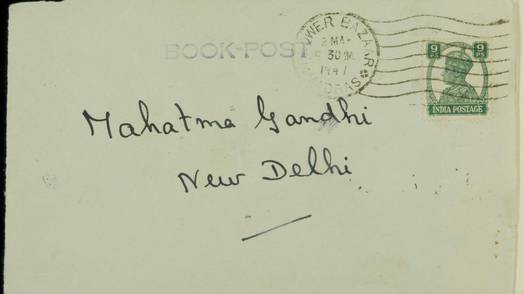 BOOK-POST
FLOWER BAZAAR
2 MAY
5 30 PM
1947
MADRAS
9 PS 9 PS
INDIA POSTAGE
Mahatma Gandhi
New Delhi